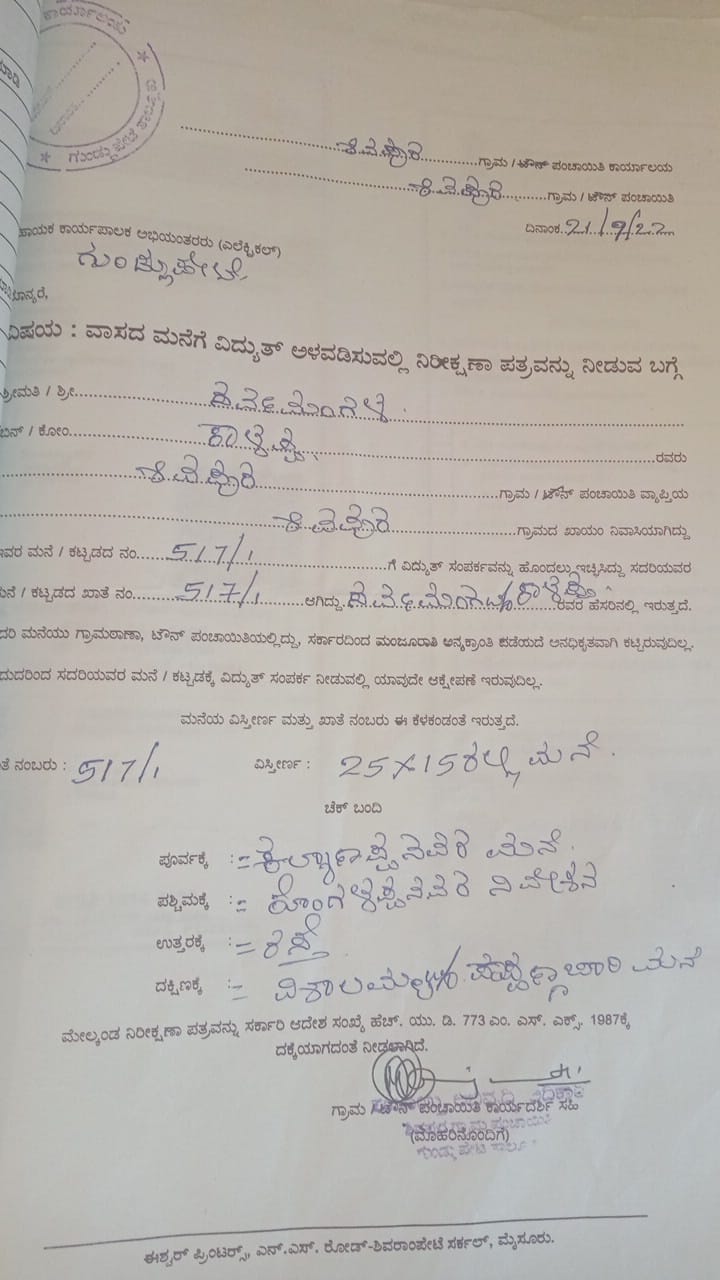 ಕಾರ್ಯಾಲಯ
ಗುಂಡ್ಲುಪೇಟೆ ತಾಲ್ಲೂಕು
ಗ್ರಾಮ / ಟೌನ್ ಪಂಚಾಯಿತಿ ಕಾರ್ಯಾಲಯ
ಗ್ರಾಮ / ಟೌನ್ ಪಂಚಾಯಿತಿ
ದಿನಾಂಕ..21/9/22
ಹಾಯಕ ಕಾರ್ಯಪಾಲಕ ಅಭಿಯಂತರರು (ಎಲೆಕ್ಟ್ರಿಕಲ್)
ಗುಂಡ್ಲುಪೇಟೆ
ಮಾನ್ಯರೆ,
ವಿಷಯ : ವಾಸದ ಮನೆಗೆ ವಿದ್ಯುತ್ ಅಳವಡಿಸುವಲ್ಲಿ ನಿರೀಕ್ಷಣಾ ಪತ್ರವನ್ನು ನೀಡುವ ಬಗ್ಗೆ
ಶ್ರೀಮತಿ / ಶ್ರೀ
ಬಿನ್ / ಕೋಂ ರವರು
ಗ್ರಾಮ / ಟೌನ್ ಪಂಚಾಯಿತಿ ವ್ಯಾಪ್ತಿಯ
ಗ್ರಾಮದ ಖಾಯಂ ನಿವಾಸಿಯಾಗಿದ್ದು
ಇವರ ಮನೆ / ಕಟ್ಟಡದ ನಂ. 517/1 ಗೆ ವಿದ್ಯುತ್ ಸಂಪರ್ಕವನ್ನು ಹೊಂದಲು ಇಚ್ಛಿಸಿದ್ದು ಸದರಿಯವರ
ಮನೆ / ಕಟ್ಟಡದ ಖಾತೆ ನಂ. 517/1 ಆಗಿದ್ದು ರವರ ಹೆಸರಿನಲ್ಲಿ ಇರುತ್ತದೆ.
ದರಿ ಮನೆಯು ಗ್ರಾಮಠಾಣಾ, ಟೌನ್ ಪಂಚಾಯಿತಿಯಲ್ಲಿದ್ದು, ಸರ್ಕಾರದಿಂದ ಮಂಜೂರಾತಿ ಅನ್ಯಕ್ರಾಂತಿ ಪಡೆಯದೆ ಅನಧಿಕೃತವಾಗಿ ಕಟ್ಟಿರುವುದಿಲ್ಲ.
ದುದರಿಂದ ಸದರಿಯವರ ಮನೆ / ಕಟ್ಟಡಕ್ಕೆ ವಿದ್ಯುತ್ ಸಂಪರ್ಕ ನೀಡುವಲ್ಲಿ ಯಾವುದೇ ಆಕ್ಷೇಪಣೆ ಇರುವುದಿಲ್ಲ.
ಮನೆಯ ವಿಸ್ತೀರ್ಣ ಮತ್ತು ಖಾತೆ ನಂಬರು ಈ ಕೆಳಕಂಡಂತೆ ಇರುತ್ತದೆ.
ತೆ ನಂಬರು : 517/1 ವಿಸ್ತೀರ್ಣ : 25×15ರಲ್ಲಿ ಮನೆ.
ಚೆಕ್ ಬಂದಿ
ಪೂರ್ವಕ್ಕೆ := ಕಲ್ಯಾಣಪ್ಪನವರ ಮನೆ.
ಪಶ್ಚಿಮಕ್ಕೆ := ನಿವೇಶನ
ಉತ್ತರಕ್ಕೆ := ರಸ್ತೆ
ದಕ್ಷಿಣಕ್ಕೆ := ವಿಶಾಲಮ್ಮ ಮನೆ
ಮೇಲ್ಕಂಡ ನಿರೀಕ್ಷಣಾ ಪತ್ರವನ್ನು ಸರ್ಕಾರಿ ಆದೇಶ ಸಂಖ್ಯೆ ಹೆಚ್. ಯು. ಡಿ. 773 ಎಂ. ಎಸ್. ಎಕ್ಸ್. 1987ಕ್ಕೆ
ದಕ್ಕೆಯಾಗದಂತೆ ನೀಡಲಾಗಿದೆ.
ಗ್ರಾಮ / ಟೌನ್ ಪಂಚಾಯಿತಿ ಕಾರ್ಯದರ್ಶಿ ಸಹಿ
(ಮೊಹರಿನೊಂದಿಗೆ)
ಈಶ್ವರ್ ಪ್ರಿಂಟರ್ಸ್, ಎನ್.ಎಸ್. ರೋಡ್-ಶಿವರಾಂಪೇಟೆ ಸರ್ಕಲ್, ಮೈಸೂರು.